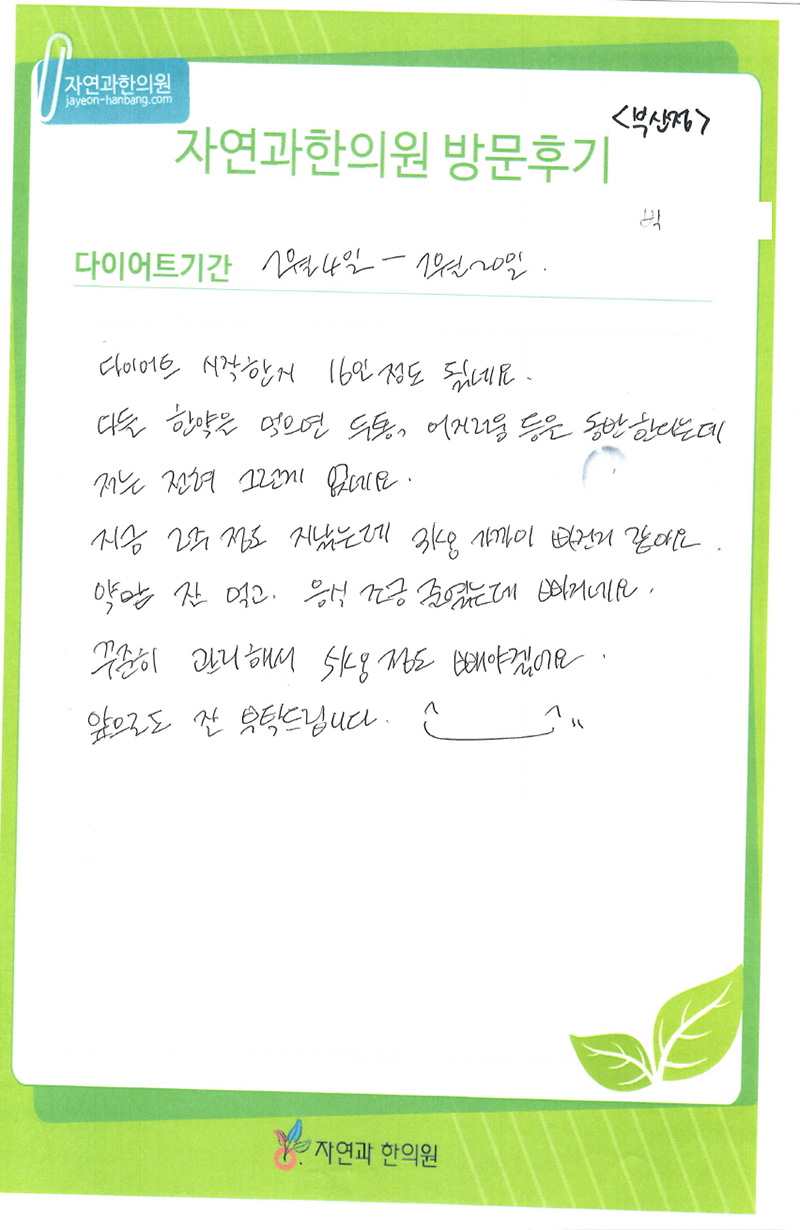 자연과한의원
jayeon-hanbang.com
<부산점>
자연과한의원 방문후기
박
다이어트기간 1월 4일 - 1월 20일.
다이어트 시작한지 16일 정도 됬네요.
다들 한약을 먹으면 두통, 어지러움 등은 동반한다는데
저는 전혀 그런게 없네요.
지금 2주 정도 지났는데 3kg 가까이 빠진거 같아요.
약만 잘 먹고. 음식 조금 줄였는데 빠지네요.
꾸준히 관리해서 5kg 정도 빼야겠어요.
앞으로도 잘 부탁드립니다.
자연과 한의원